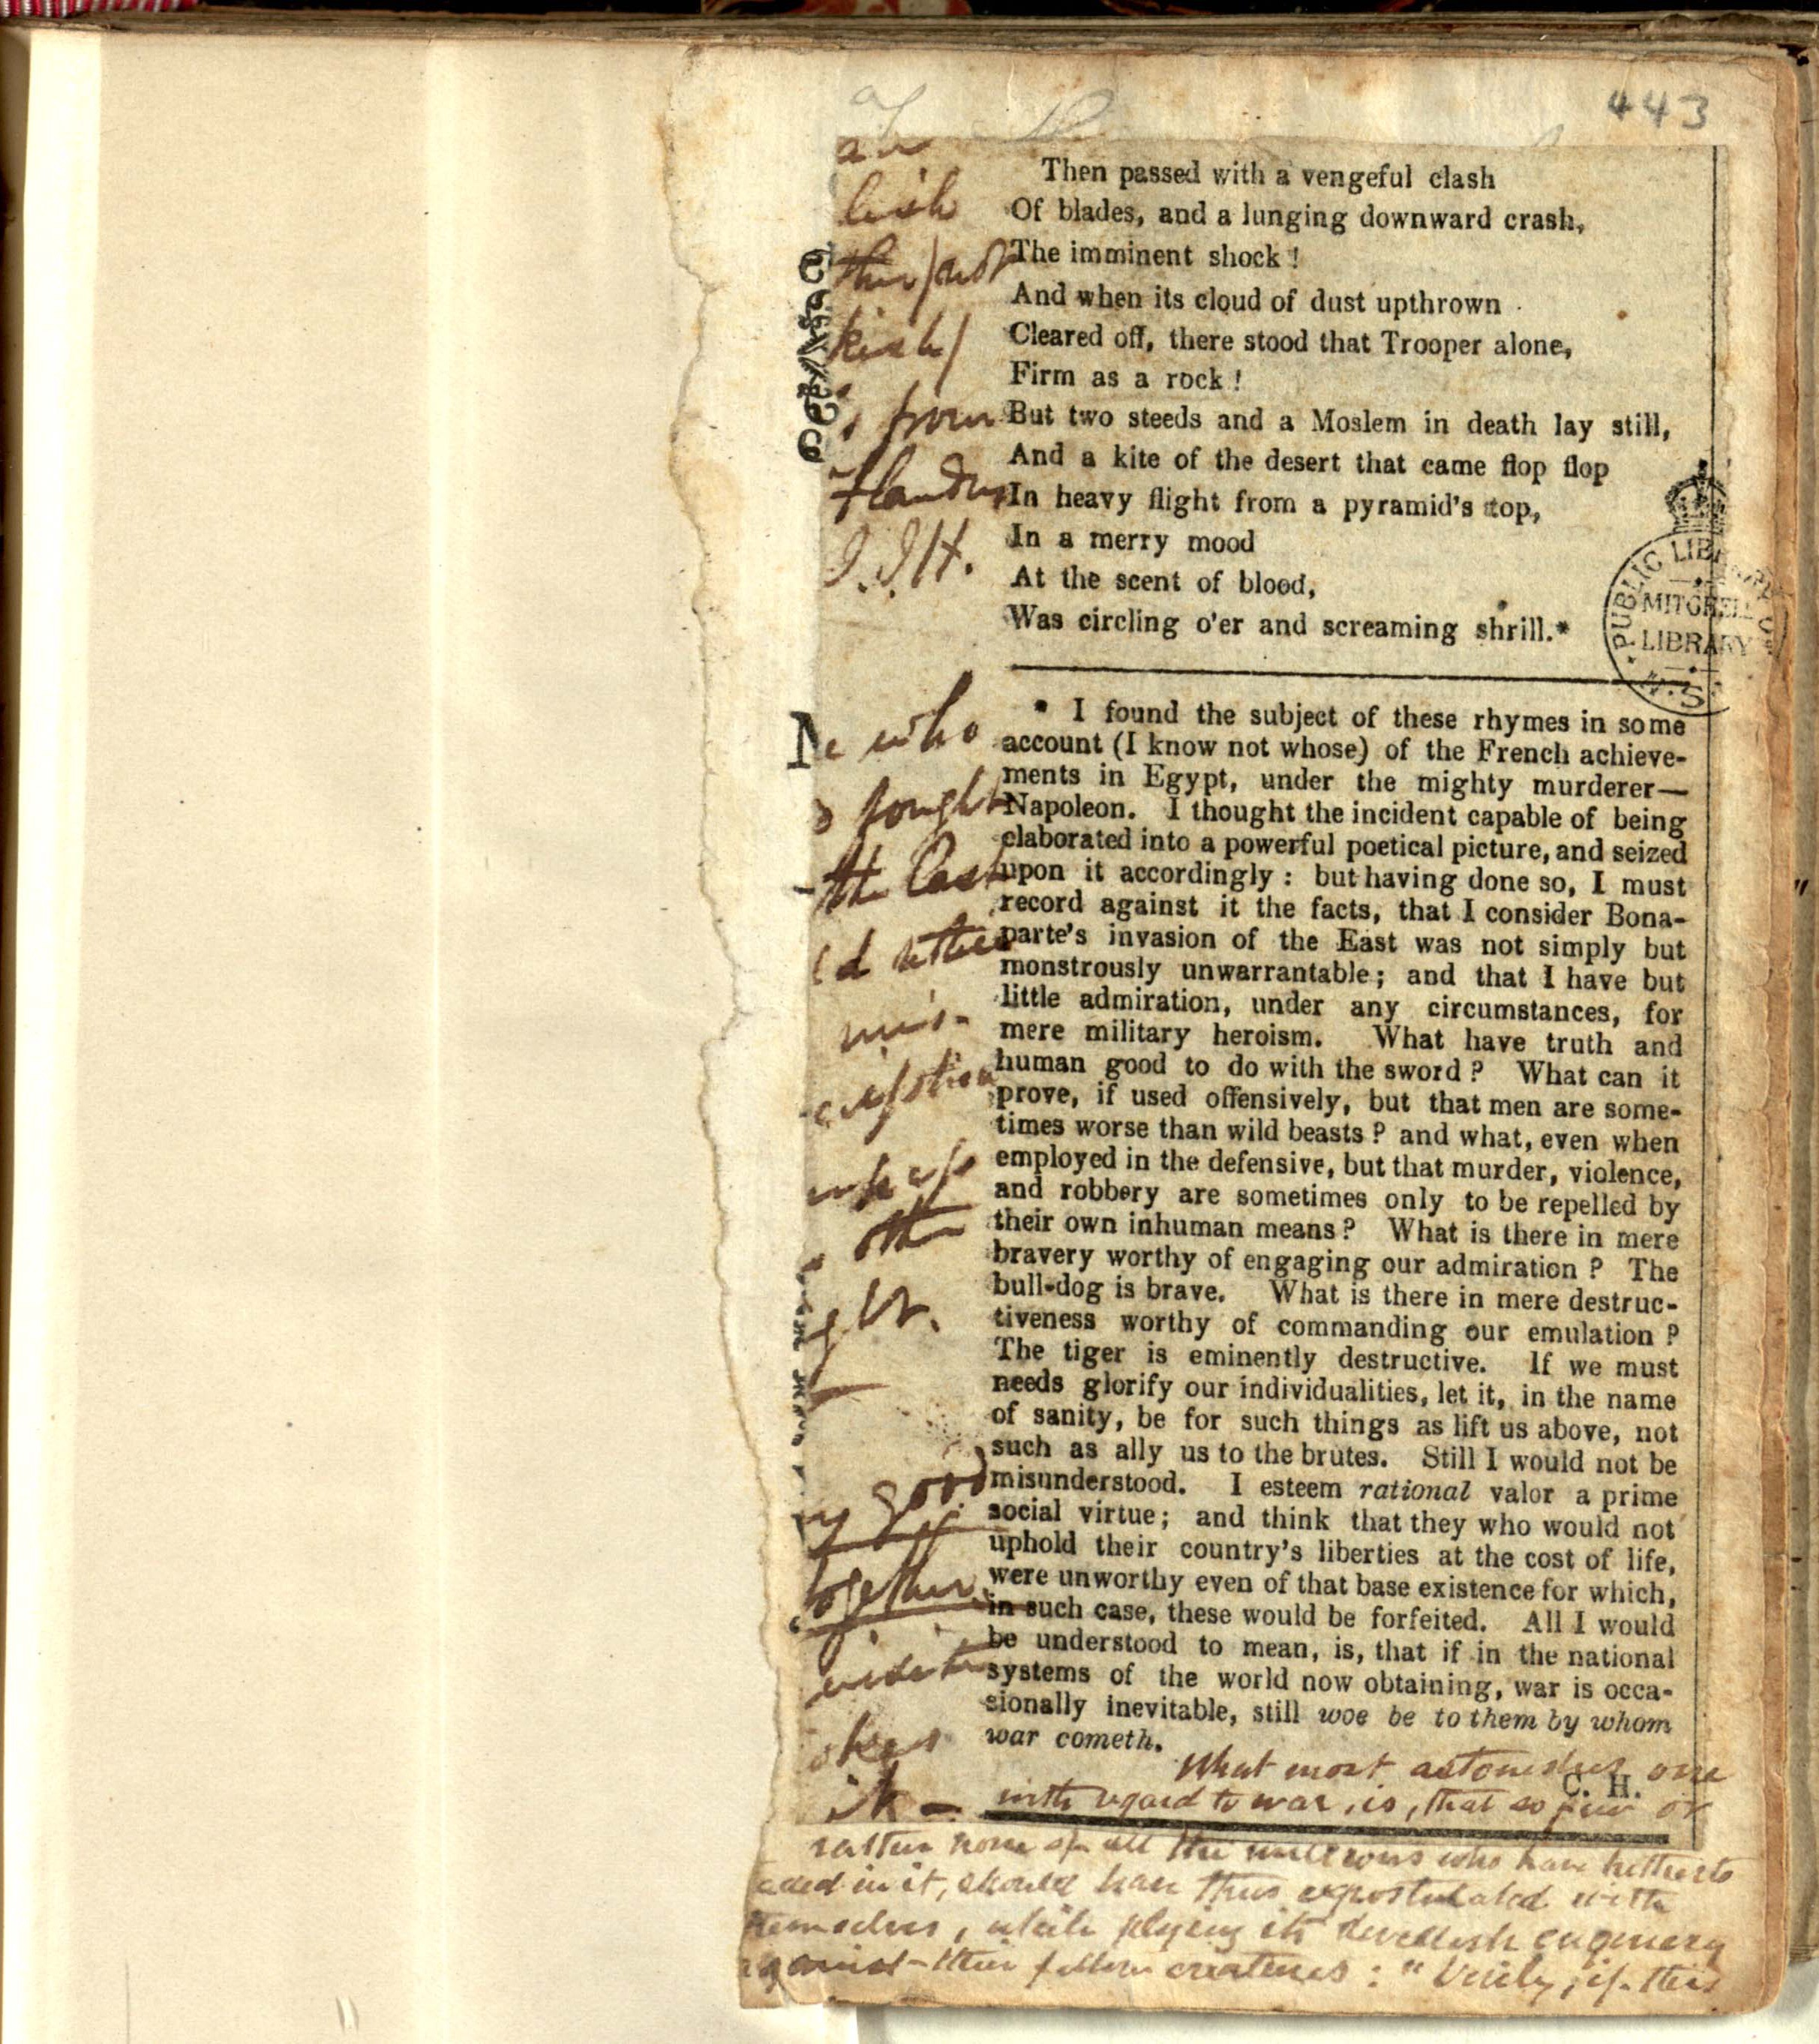 443
Then passed with a vengeful clash
Of blades, and a lunging downward crash,
The imminent shock !
And when its cloud of dust upthrown
Cleared off, there stood that Trooper alone,
Firm as a rock !
But two steeds and a Moslem in death lay still,
And a kite of the desert that came flop flop
In heavy flight from a pyramid's top,
In a merry mood
At the scent of blood,
Was circling o'er and screaming shrill.*
PUBLIC LIBRARY
MITCHELL
LIBRARY
N.S.
* I found the subject of these rhymes in some
account (I know not whose) of the French achieve-
ments in Egypt, under the mighty murderer—
Napoleon. I thought the incident capable of being
elaborated into a powerful poetical picture, and seized
upon it accordingly : but having done so, I must
record against it the facts, that I consider Bona-
parte's invasion of the East was not simply but
monstrously unwarrantable; and that I have but
little admiration, under any circumstances, for
mere military heroism. What have truth and
human good to do with the sword ? What can it
prove, if used offensively, but that men are some-
times worse than wild beasts ? and what, even when
employed in the defensive, but that murder, violence,
and robbery are sometimes only to be repelled by
their own inhuman means ? What is there in mere
bravery worthy of engaging our admiration ? The
bull-dog is brave. What is there in mere destruc-
tiveness worthy of commanding our emulation ?
The tiger is eminently destructive. If we must
needs glorify our individualities, let it, in the name
of sanity, be for such things as lift us above, not
such as ally us to the brutes. Still I would not be
misunderstood. I esteem rational valor a prime
social virtue; and think that they who would not
uphold their country's liberties at the cost of life,
were unworthy even of that base existence for which,
in such case, these would be forfeited. All I would
be understood to mean, is, that if in the national
systems of the world now obtaining, war is occa-
sionally inevitable, still woe be to them by whom
war cometh.
C. H.
from
who
fought
other
good
together
it –
What most astonishes one
with regard to war, is, that so few or
rather none of all the millions who have hitherto
aided in it, should have thus expostulated with
themselves, while plying its devellish enginery
against their fellow creatures : "Verily, if this